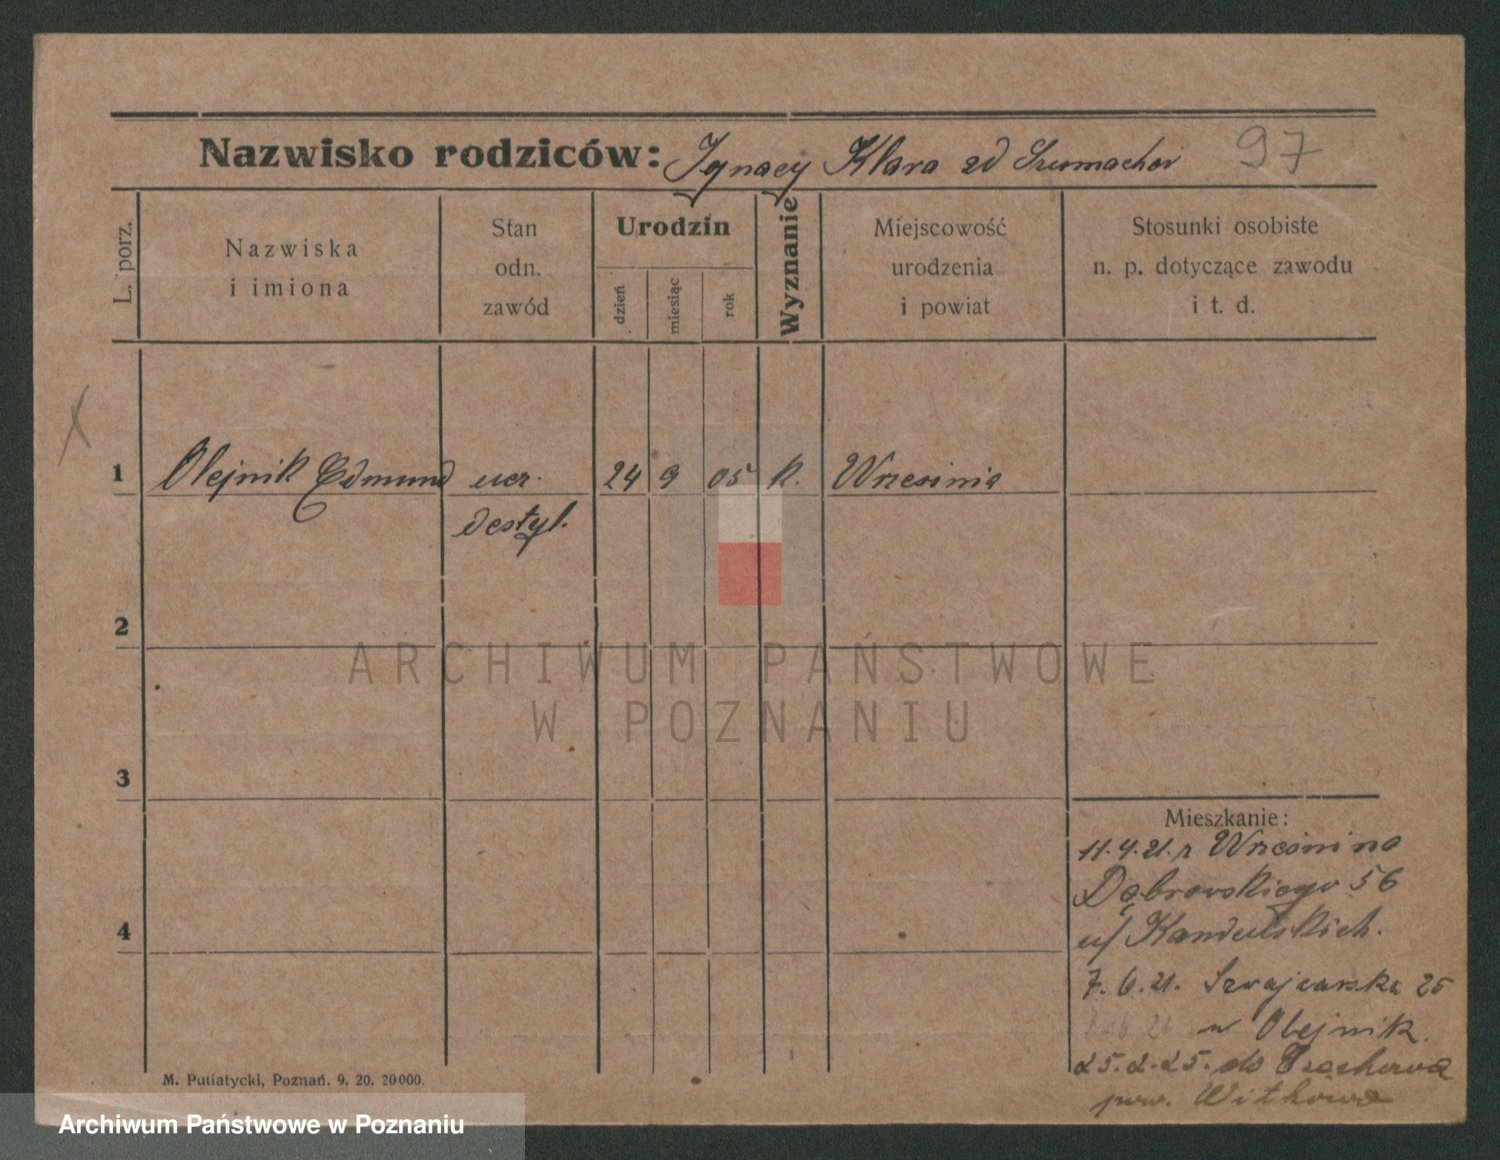 Nazwisko rodziców: Ignacy Klara zd Szumacher 97
L. porz.
Nazwiska
i imiona
Stan
odn.
zawód
Urodzin
dzień
miesiąc
rok
Wyznanie
Miejscowość
urodzenia
i powiat
Stosunki osobiste
n. p. dotyczące zawodu
i t. d.
X
1 Olejnik Edmund ucz. 24 9 05 k. Września
destyl.
2
3
4
Mieszkanie:
11.4.21. z Wrześni na
Dąbrowskiego 56
u/ Kandulskich.
7.6.21. Szwajcarska 25
u Olejnik
25.2.25. do
pow. Witkowo
M. Putiatycki, Poznań. 9. 20. 20000.
ARCHIWUM PAŃSTWOWE
W POZNANIU
Archiwum Państwowe w Poznaniu